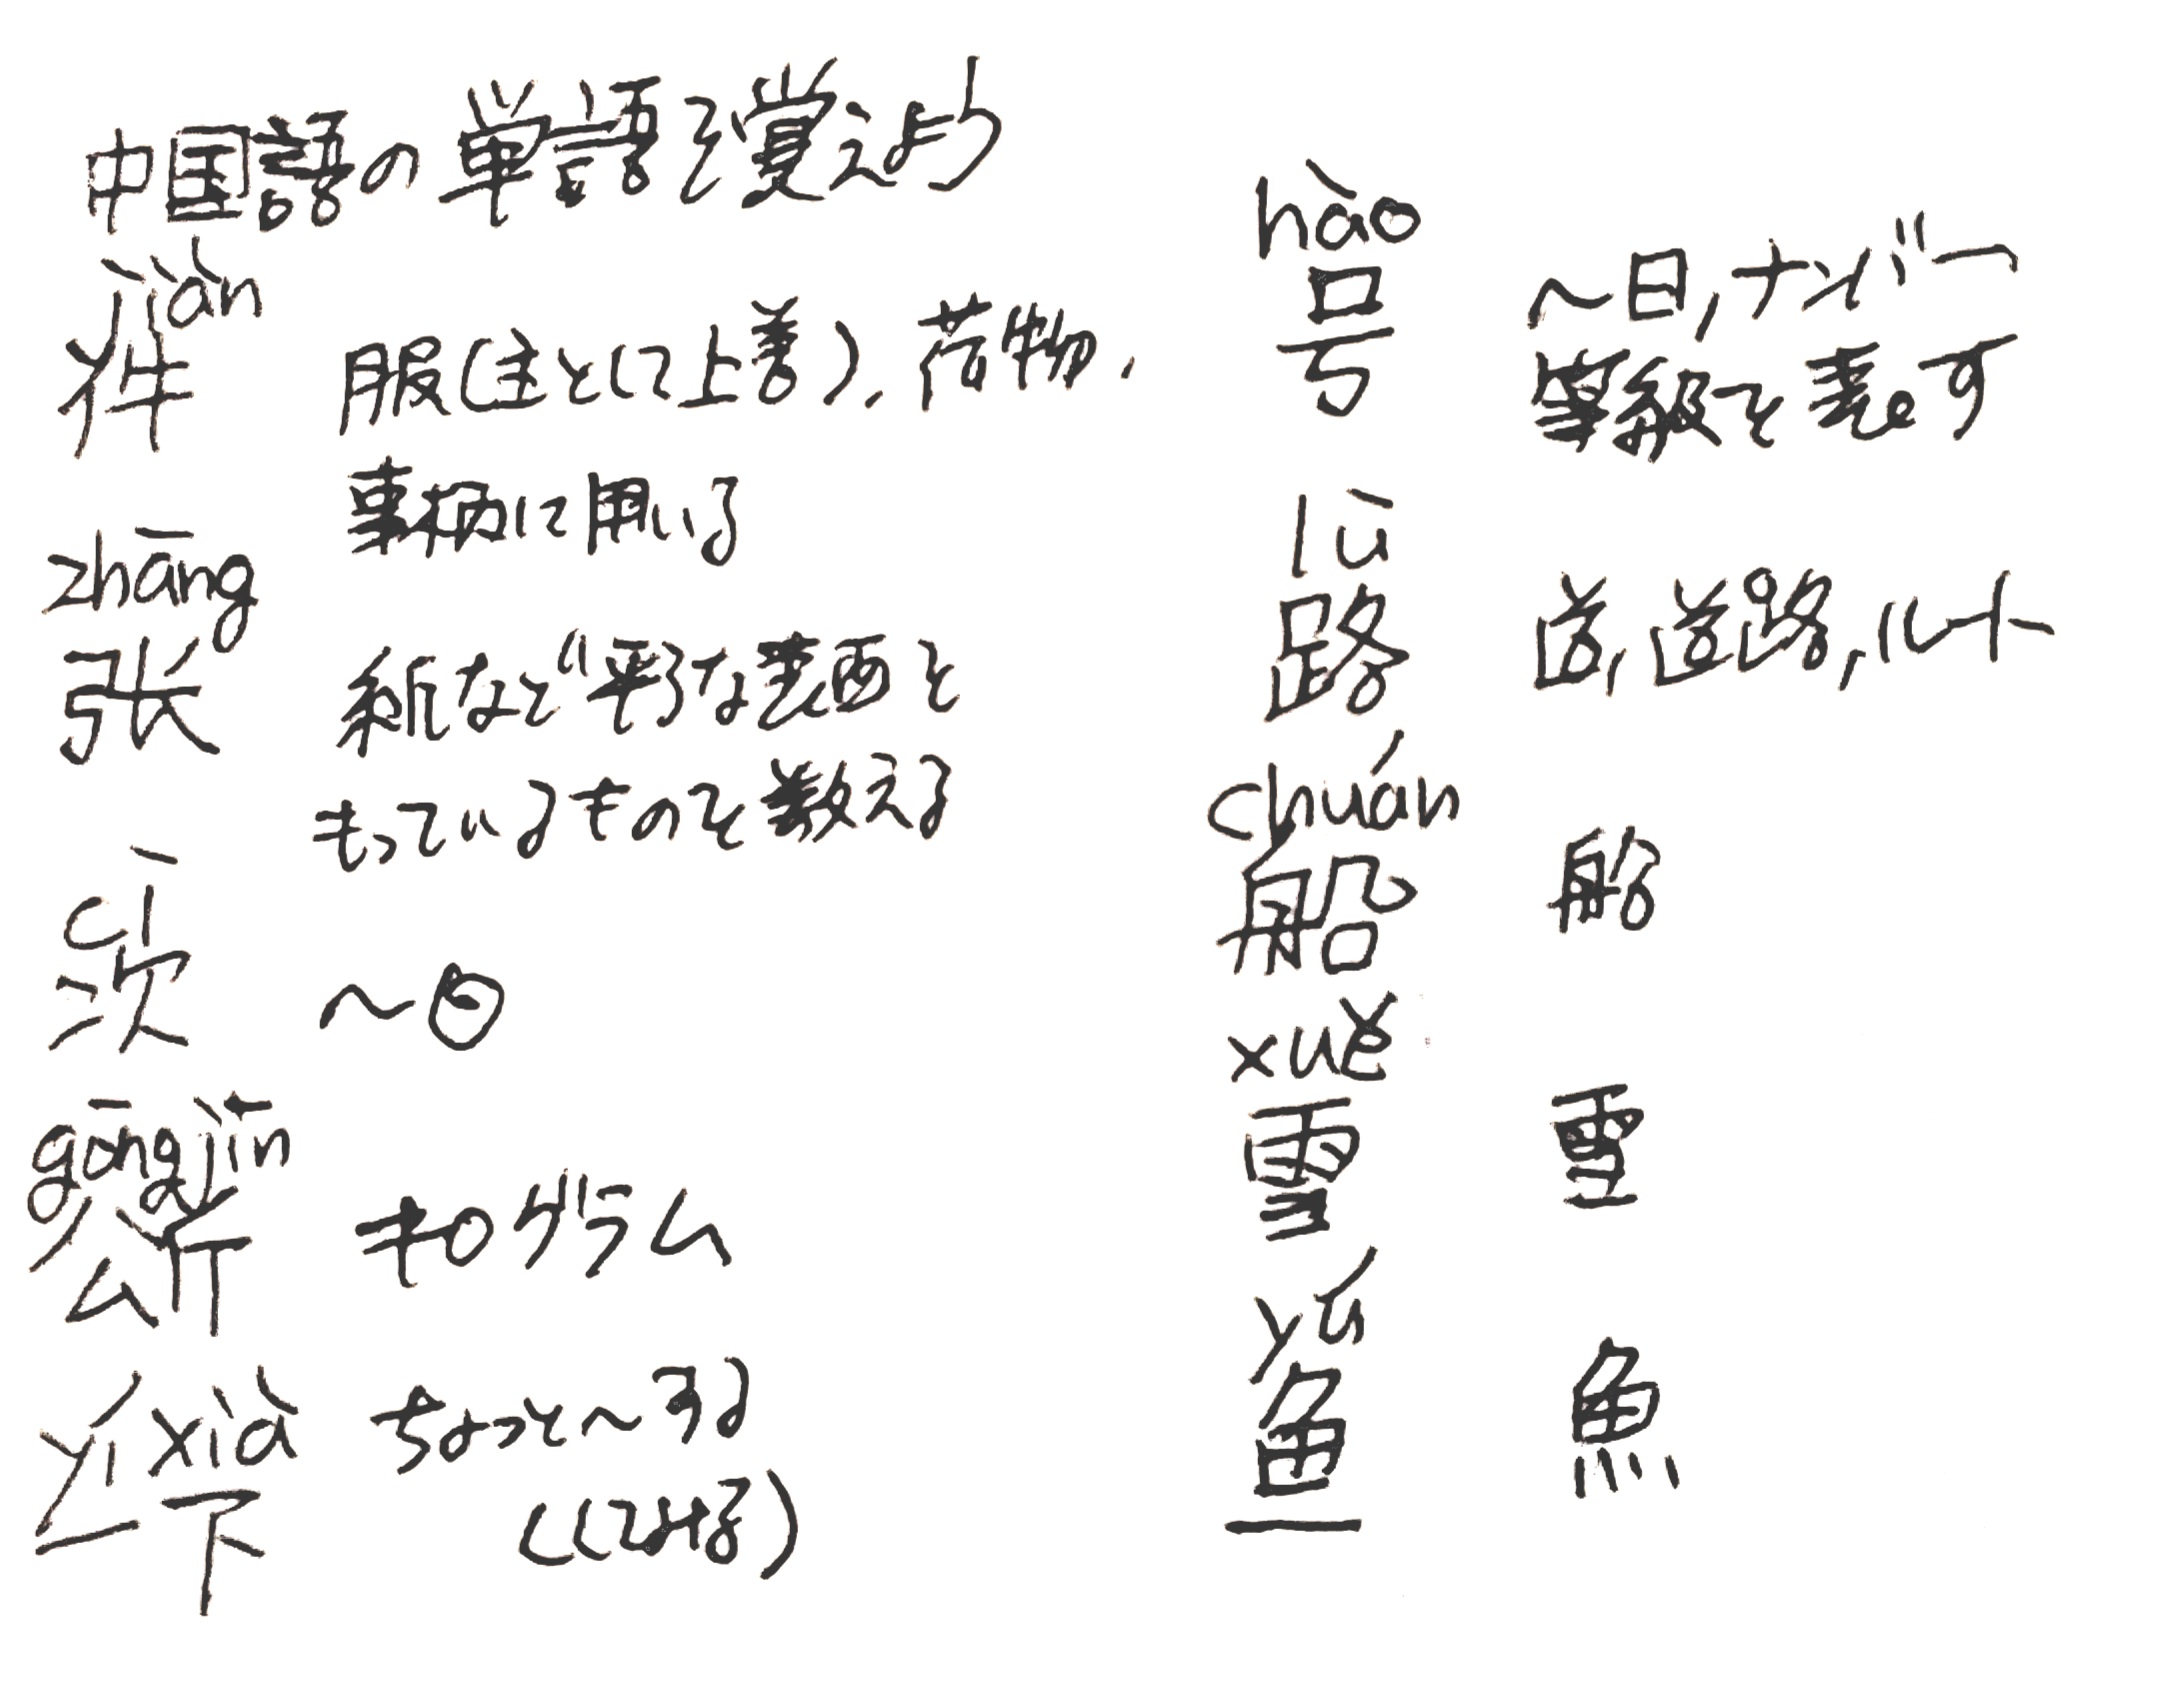 中国語の単語を覚えよう
jiàn
件 服(主として上着)、荷物、
事柄に用いる
zhāng
張 紙など平らな表面を
もっているものを数える
cì
次 ~回
gōngjīn
公斤 キログラム
yí xià
一下 ちょっと~する
(してみる)
hào
号 ~日,ナンバー
等級を表す
lù
路 道,道路,ルート
chuán
船 船
xuě
雪 雪
yú
鱼 魚